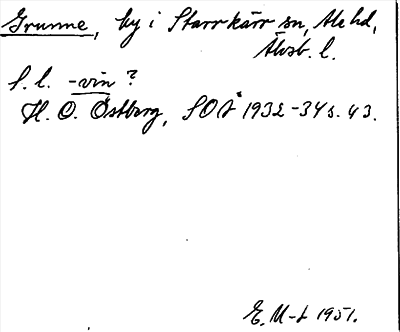 Grunne, by i Starrkärr sn, Ale hd,
Älvsb. l.
S. l. -vin?
H. O. Östberg, SOÅ 1932-34 s. 43.
E. M-t 1951.